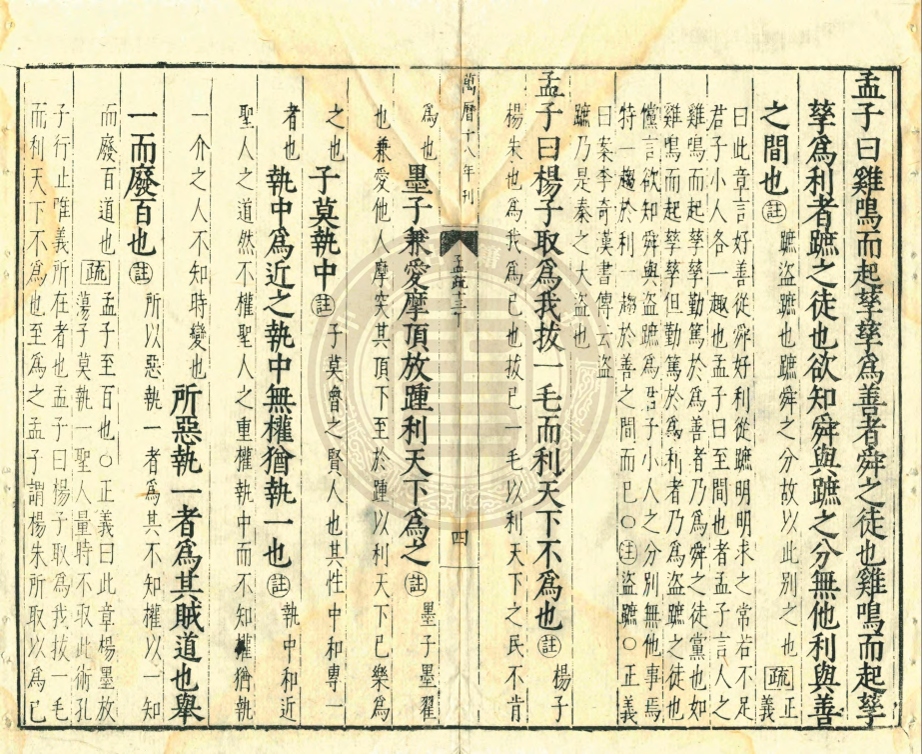 孟子曰雞鳴而起孳孳為善者舜之徒也雞鳴而起孳
孳為利者蹠之徒也欲知舜與蹠之分無他利與善
之間也 註 蹠盜蹠也蹠舜之分故以此別之也 疏 正義
曰此章言好善從舜好利從蹠明明求之常若不足
君子小人各一趣也孟子曰至間也者孟子言人之
雞鳴而起孳孳勤篤於為善者乃為舜之徒黨也如
雞鳴而起孳孳但勤篤於為利者乃為盜蹠之徒也
儻言欲知舜與盜蹠為君子小人之分別無他事焉
特一趨於利一趨於善之間而已○註盜蹠○正義
曰案李奇漢書傳云盜
蹠乃是秦之大盜也
孟子曰楊子取為我拔一毛而利天下不為也 註 楊子
楊朱也為我為己也拔己一毛以利天下之民不肯
萬曆十八年刊
孟疏十三下
四
為也 墨子兼愛摩頂放踵利天下為之 註 墨子墨翟
也兼愛他人摩突其頂下至於踵以利天下己樂為
之也 子莫執中 註 子莫魯之賢人也其性中和專一
者也 執中為近之執中無權猶執一也 註 執中和近
聖人之道然不權聖人之重權執中而不知權猶執
一介之人不知時變也 所惡執一者為其賊道也舉
一而廢百也 註 所以惡執一者為其不知權以一知
而廢百道也 疏 孟子至百也○正義曰此章楊墨放
蕩子莫執一聖人量時不取此術孔
子行止唯義所在者也孟子曰楊子取為我拔一毛
而利天下不為也至為之孟子謂楊朱所取以為己